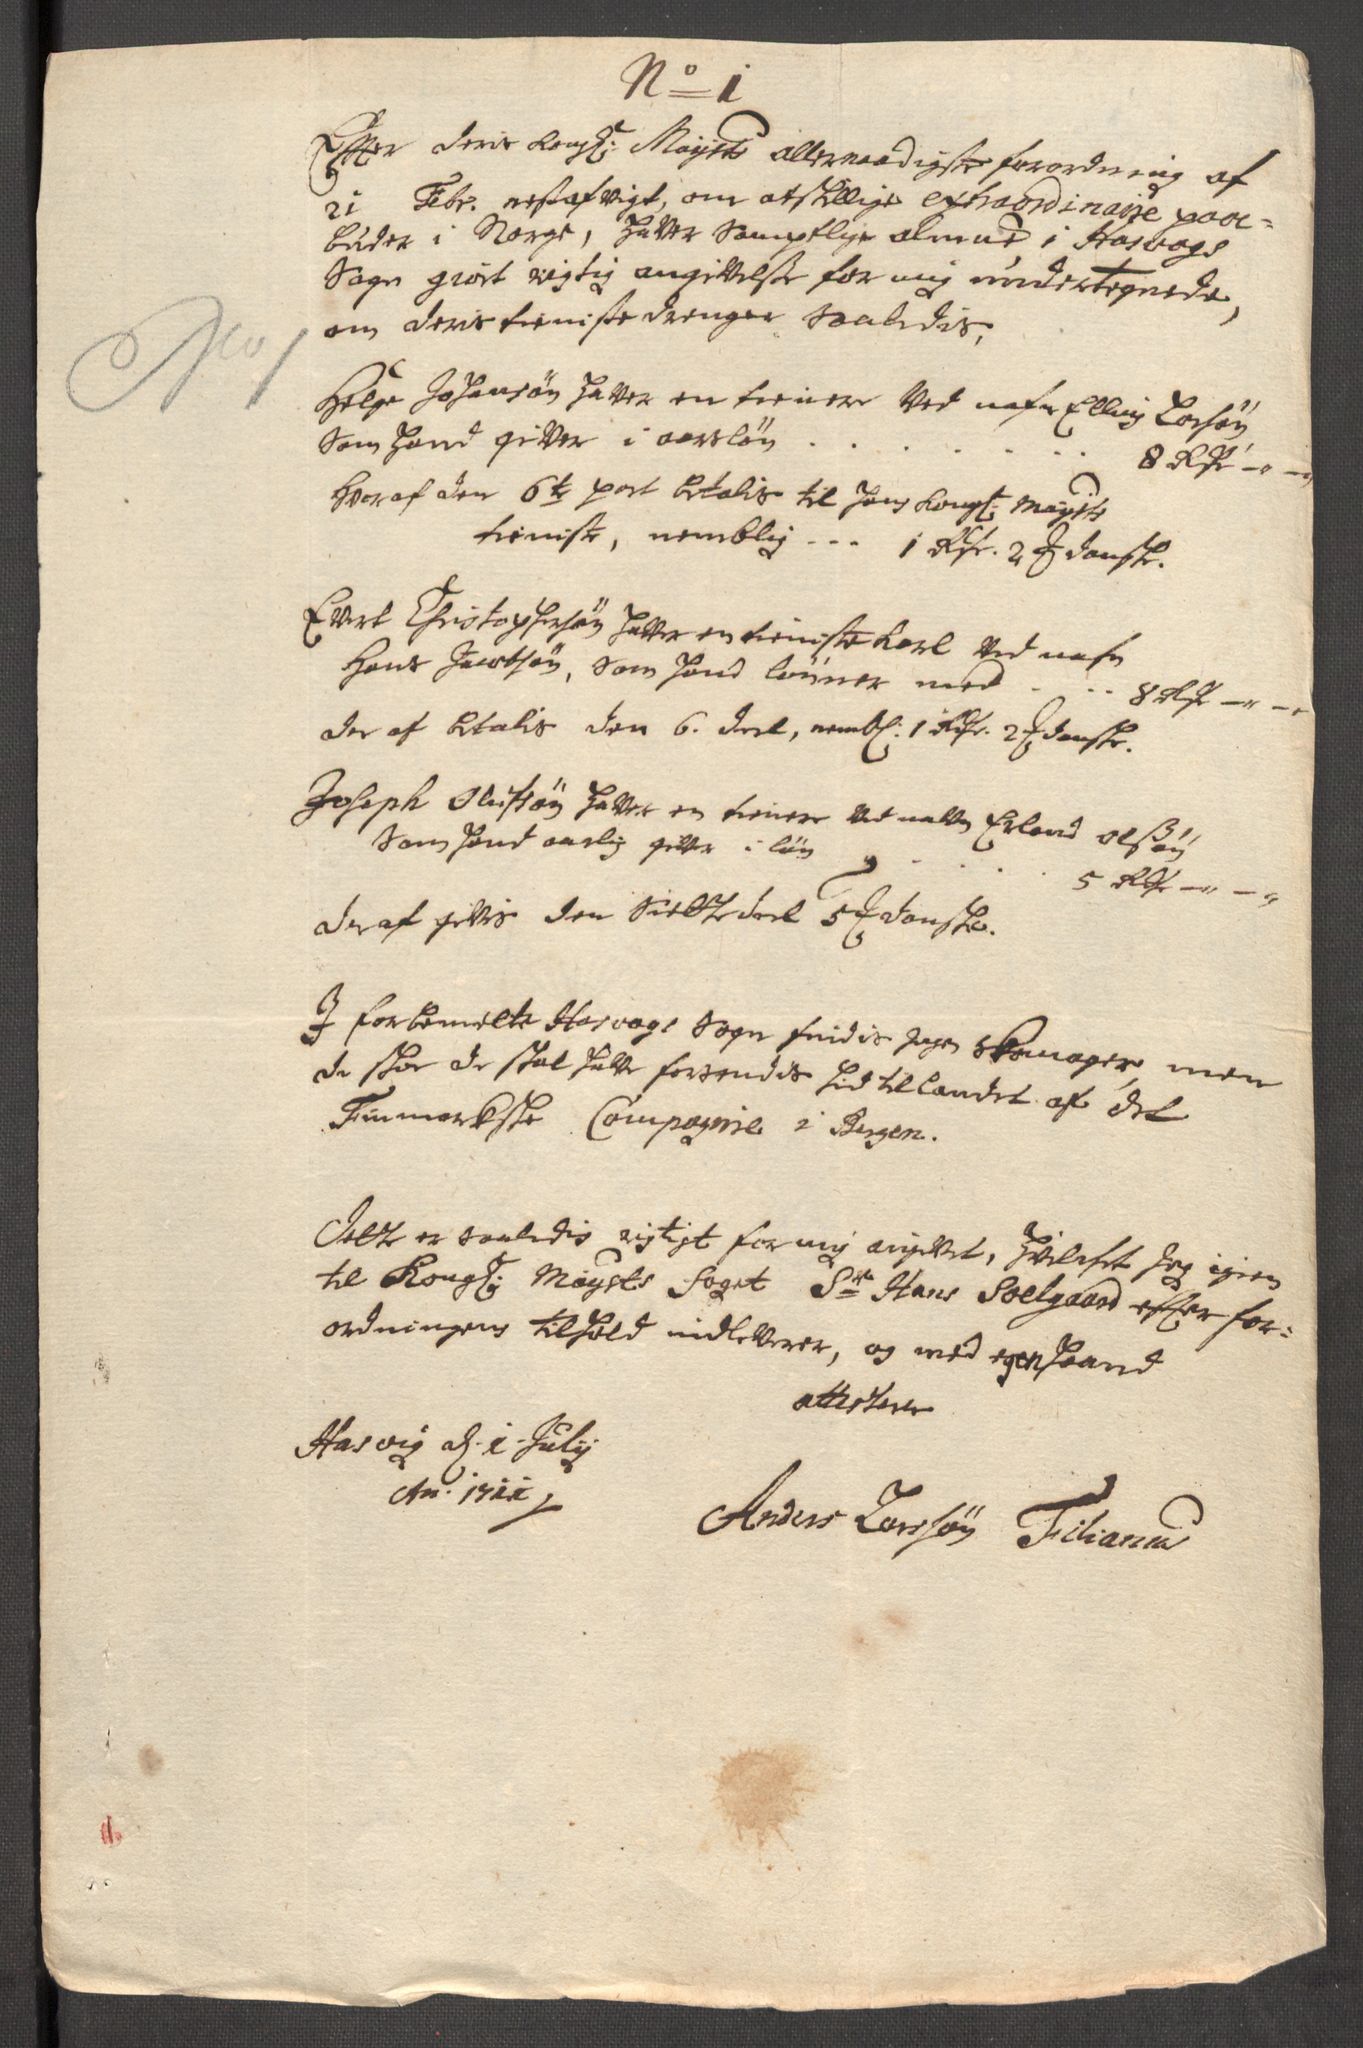 No 1
Effter deris Kongl: Maÿsts allernaadigste forordning af
21 Febr. nest afvigt, om atskillige extraordinaire paa-
buder i Norge, haver Samptlige almue i Hasvogs
Sogn giort rigtig angivelse for mig undertegnede,
om deris tieniste drenger saaledis,
No 1
Helge Johansøn haver en tienere ved nafn Elling Larsøn
Som hand giver i aarsløn . . . . . . . 8 Rdr - -
Hvoraf den 6te part betalis til hans Kongl: Maÿsts
tieniste, nemblig - - - 1 Rdr. 2 ß danske.
Evert Christophersøn haver en tieniste karl ved nafn
Hans Jacobsøn, Som hand lønner med . . . 8 Rdr - -
der af betalis den 6. deel, nembl: 1 Rdr. 2 ß danske.
Joseph Olufsøn haver en tienere ved nafn Erland Olsøn
Som hand aarlig giver i løn . . . . 5 Rdr - -
deraf givis den siette deel 5 ß danske.
I forbemelte Hasvogs Sogn findis ingen Skomager, men
de skoe de skal have forsendis hid til landet af det
Finmarkske Compagnie i Bergen.
Dette er saaledis rigtigt for mig angivet, hvilchet jeg igien
til Kongl: Maÿsts Foget Sr Hans Soelgaard effter for-
ordningens tilhold indleverer, og med egen haand
attesterer
Hasvig d. 1 Julÿ
An. 1711
Anders Larssøn Filianus